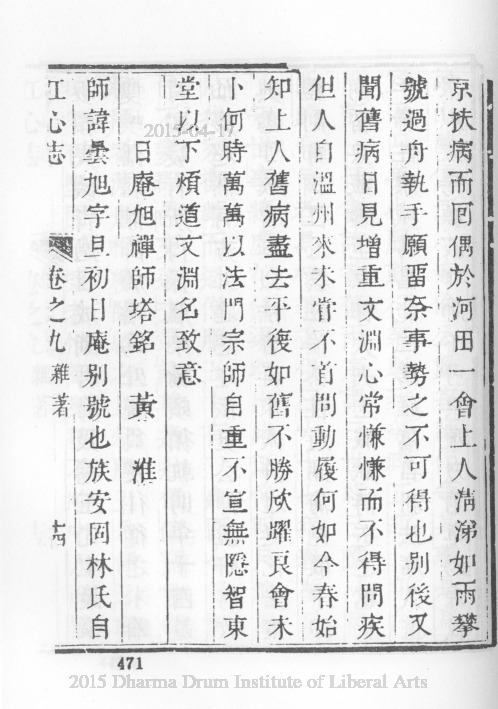 京扶病而回偶於河田一會上人淸涕如雨攀
號過舟執手願畱奈事勢之不可得也别後又
聞舊病日見增重文淵心常慊慊而不得問疾
但人自溫州來未甞不首問動履何如今春始
知上人舊病盡去平復如舊不勝欣躍良會未
卜何時萬萬以法門宗師自重不宣無隱智東
堂以下煩道文淵名致意
日庵旭禪師塔銘 黃淮
師諱曇旭字旦初日庵别號也族安固林氏自
江心志 卷之九 雜著 十四
471
2015-04-17
2015 Dharma Drum Institute of Liberal Arts